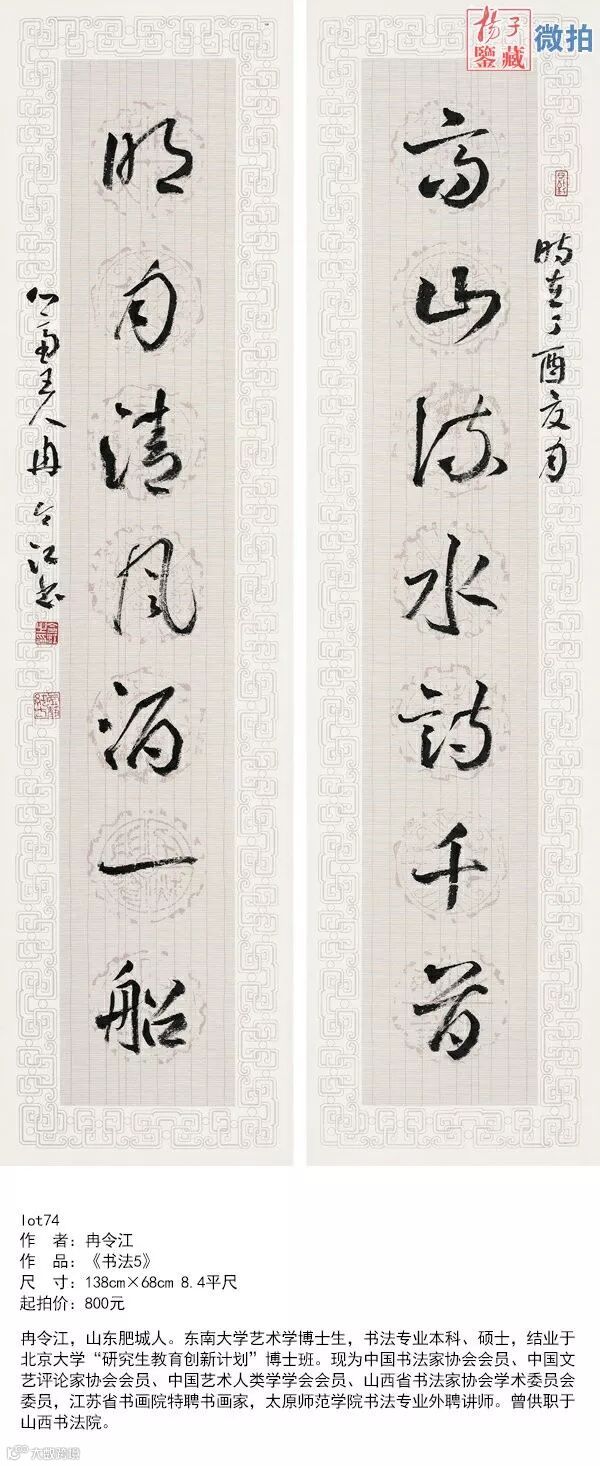 扬子
鑒藏
微拍
高山流水詩千首
時在丁酉夏月
明月清風酒一船
主人冉令江书
lot74
作 者：冉令江
作 品：《书法5》
尺 寸：138cm×68cm 8.4平尺
起拍价：800元
冉令江，山东肥城人。东南大学艺术学博士生，书法专业本科、硕士，结业于
北京大学“研究生教育创新计划”博士班。现为中国书法家协会会员、中国文
艺评论家协会会员、中国艺术人类学学会会员、山西省书法家协会学术委员会
委员，江苏省书画院特聘书画家，太原师范学院书法专业外聘讲师。曾供职于
山西书法院。
大数跨境